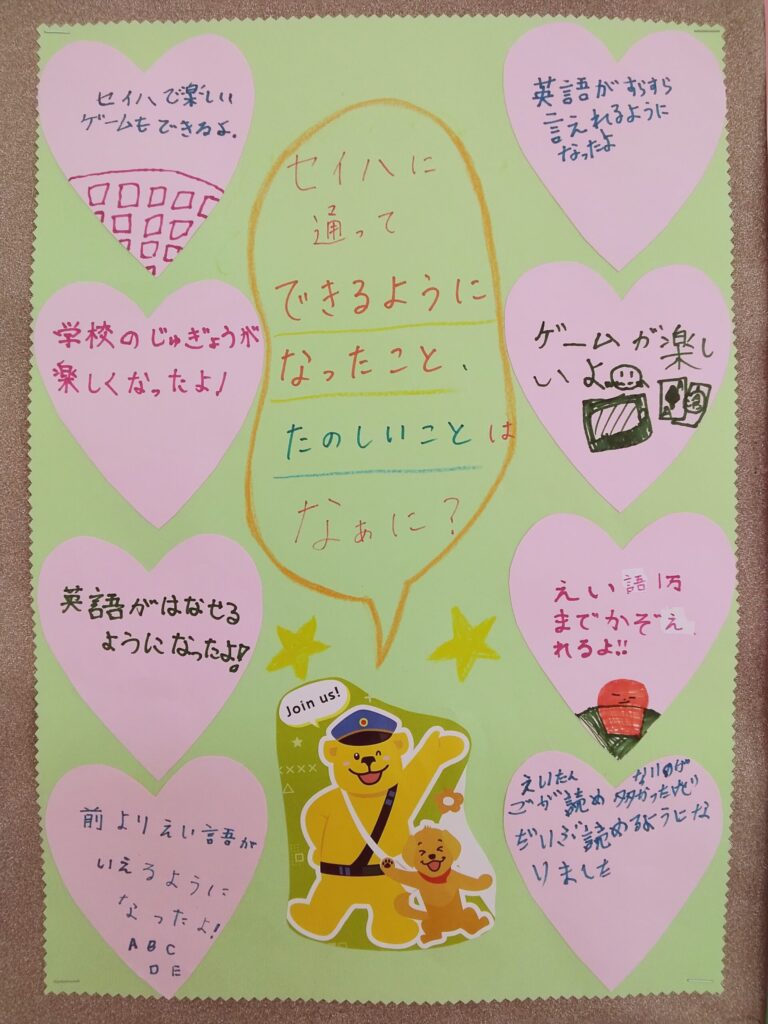 セイハに
通って
できるように
なったこと、
たのしいことは
なぁに？
セイハで楽しい
ゲームもできるよ.
英語がすらすら
言えれるように
なったよ
学校のじゅぎょうが
楽しくなったよ!
ゲームが楽し
いよ
英語がはなせる
ようになったよ!
えい語1万
までかぞえ
れるよ!!
前よりえい語が
いえるように
なったよ!
A B C
D E
えいたん
ごが読め
だいぶ読めるようにな
りました
Join us!